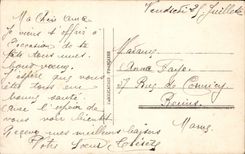 Vendredi 25 Juillet
Ma Chère Anna
Je viens t'offrir à
l'occasion de ta
fête tous mes
bons vœux.
J'espère que vous
êtes tous en
bonne santé
avec l'espoir de
vous voir bientôt
Reçois mes meilleurs baisers
Votre Sœur Thérèse
CARTE POSTALE
Madame
Anna Faye
17 Rue de Courcy
Reims
Marne